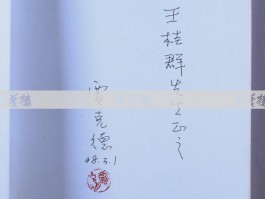 王桂群先生正之
贾克德
98.3.1